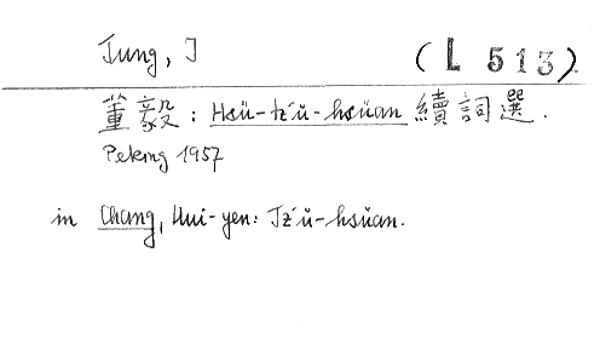 Tung, I (L 513)
董毅: Hsü-tz'ŭ-hsüan 續詞選.
Peking 1957
in Chang, Hui-yen: Tz'ŭ-hsüan.